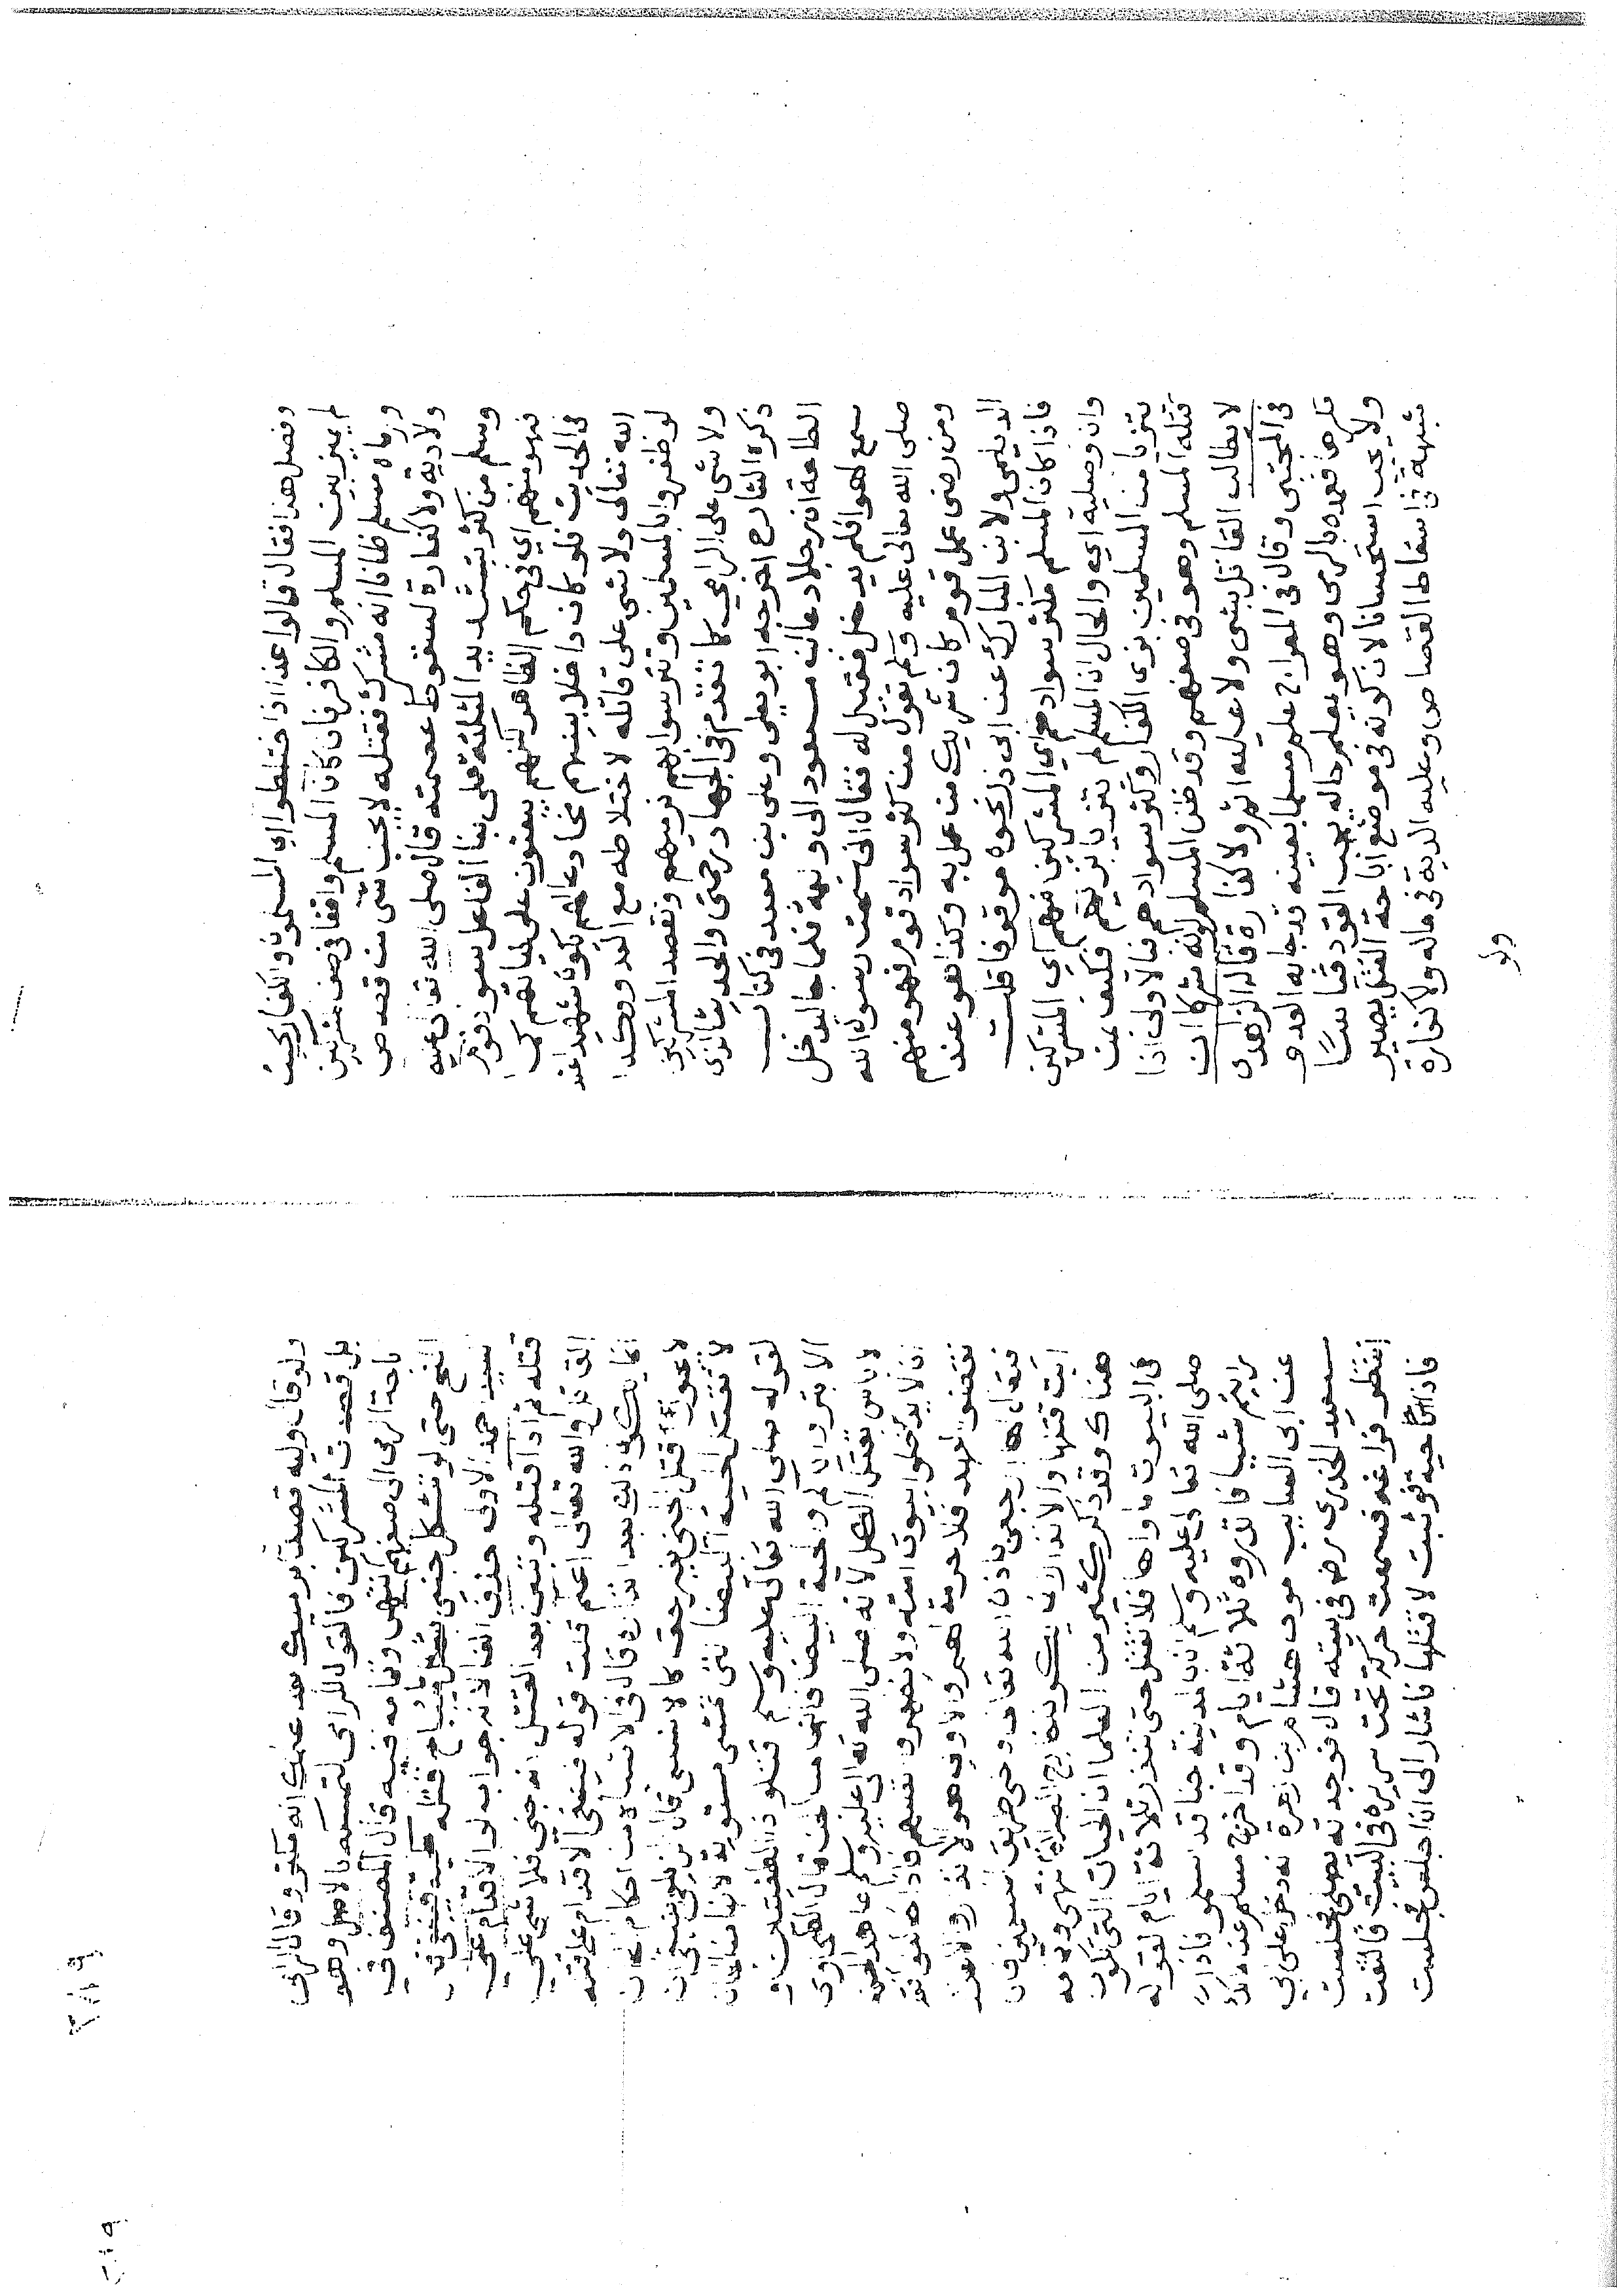 وفصل هذا فقال قالوا هذا اذا اختلطوا اي المسلمون والكفار بحيث
لم يميز بين المسلم والكافر فان كان المسلم واقفا في صف مشركين
ورماه مسلم ظانا انه مشرك فقتله لا يجب شي من قصاص
ولا دية ولا كفارة لسقوط عصمته قال صلى الله تعالى عليه
وسلم من كثر بتشديد المثلثة على بنا الفاعل سواد قوم
فهو منهم اي في حكم الظاهر لكنهم يبعثون على نياتهم كما
في الحديث فلو كان داخلا بينهم مخادعا لهم يكون شهيدا عند
الله تعالى ولا شي على قاتله لاختلاطه مع العدو وكذا
لو ظفروا بالمسلمين وتترسوا بهم نرميهم ونقصد المشركين
ولا شي على الرامي كما تقدم في الجهاد رحمتي والحديث الذي
ذكره الشارح اخرجه ابو يعلى وعلي بن معبد في كتاب
الطاعة ان رجلا دعا ابن مسعود الى وليمة فلما جا ليدخل
سمع لهوا فلم يدخل فقيل له فقال اني سمعت رسول الله
صلى الله تعالى عليه وسلم يقول من كثر سواد قوم فهو منهم
ومن رضى عمل قوم كان شريك من عمل به وكذا هو عند
الديلمي ولابن المبارك عن ابي ذر نحوه موقوفا قلت
فاذا كان المسلم مكثر سوادهم اي المشركين فهم اي المشركين
وان وصلية اي والحال ان المسلم لم يتزيا بزيهم فكيف بمن
تزيا من المسلمين بزي الكفار وكثر سوادهم فالاولى اذا
قتله المسلم وهو في صفهم وقد ظن المسلم كونه مشركا ان
لا يطالب القاتل بشي ولا عليه اثم ولا كفارة قاله الزاهدي
في المجتبى وقال في المعراج علم مسلما بعينه قد جا به العدو
مكرها فعمده بالرمي وهو يعلم حاله يجب القود قياسا
ولا يجب استحسانا لان كونه في موضع اباحة القتل يصير
شبهة في اسقاط القصاص وعليه الدية في ماله ولا كفارة
ولو
ولو قال وليه قصدت برميك بعد علمك انه مكره وقال الرامي
بل قصدت المشركين فالقول للرامي لتمسكه بالاصل وهو
اباحة الرمي الى صفهم انتهى وتمامه فيه قال المصنف في
المنح حتى لو تشكل جني بما يباح قتله كحية فينبغي
سبيل هذا الاولى حذف الفا لانه جواب لو الاقدام على
قتله ثم اذا قتله وتبين بعد القتل انه جني فلا شي على
القاتل والله تعالى اعلم قلت قوله فينبغي الاقدام على قتله
انما يكون ذلك بعد انذاره قال في الاشباه من احكام الجان
لا يجوز قتل الجني بغير حق كالانسي قال الزيلعي ينبغي ان
لا تقتل الحية البيضا التي تمشي مستوية لانها من الجان
لقوله صلى الله تعالى عليه وسلم اقتلوا ذا الطفيتين و
الابتر واياكم والحية البيضا فانها من الجن قال الطحاوي
لا باس بقتل الكل لانه صلى الله تعالى عليه وسلم عاهد الجن
ان لا يدخلوا بيوت امته ولا يظهروا انفسهم فاذا خالفوا فقد
نقضوا العهد فلا حرمة لهم والاولى هو الانذار والاعذار
فيقال لها ارجعي باذن الله تعالى او خلي طريق المسلمين فان
ابت قتلها والانذار انما يكون خارج الصلاة انتهى وتمامه
هناك وقد ذكر كثير من العلما ان الحيات التي تكون
في البيوت ماواها فلا تقتل حتى تنذر ثلاثة ايام لقوله
صلى الله تعالى عليه وسلم ان بالمدينة جنا قد اسلموا فاذا
رايتم شيا فانذروه ثلاثة ايام وقد اخرج مسلم عنه
عن ابي السايب مولى هشام بن زهرة انه دخل على ابي
سعيد الخدري رضه في بيته قال فوجدته يصلي فجلست
انتظر فراغه فسمعت حركة تحت سريره في البيت فالتفت
فاذا حية فوثبت لاقتلها فاشار الى ان اجلس فجلست